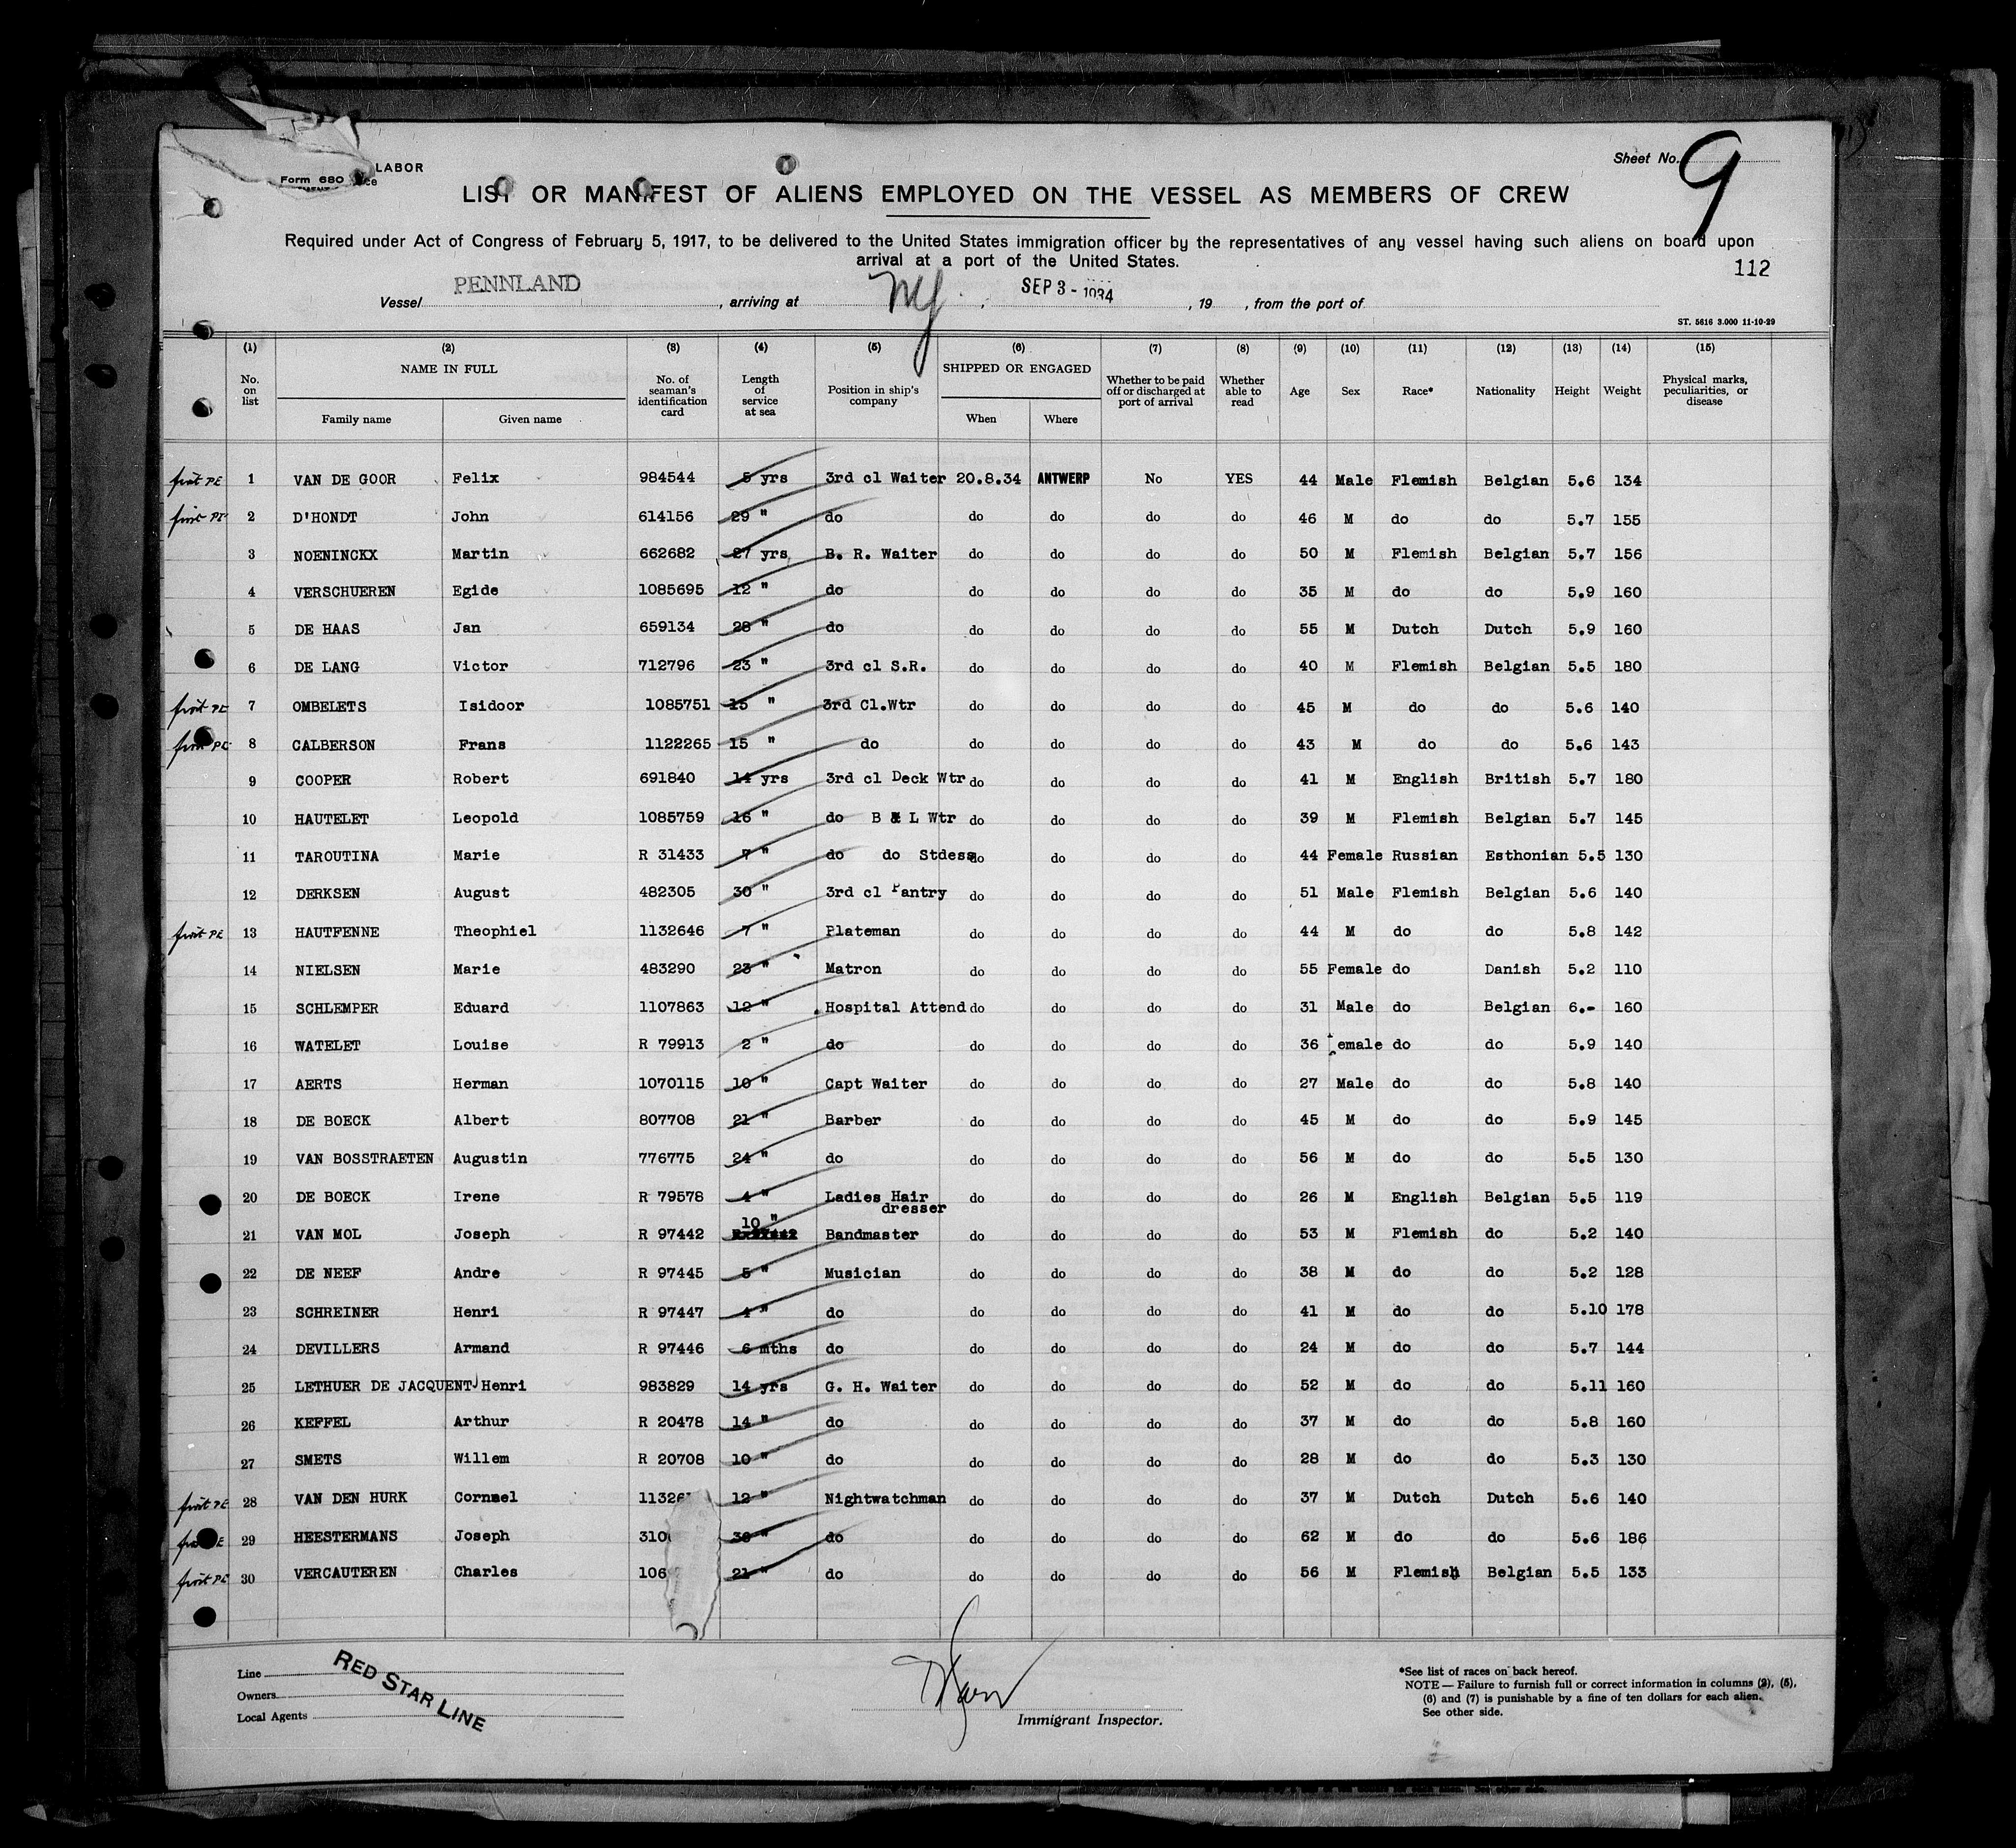 LABOR
Form 680
Sheet No. 9
LIST OR MANIFEST OF ALIENS EMPLOYED ON THE VESSEL AS MEMBERS OF CREW
Required under Act of Congress of February 5, 1917, to be delivered to the United States immigration officer by the representatives of any vessel having such aliens on board upon
arrival at a port of the United States.
112
Vessel PENNLAND, arriving at NY, SEP 3 - 1934, 19 , from the port of
ST. 5616 3.000 11-10-29
(1) (2) (3) (4) (5) (6) (7) (8) (9) (10) (11) (12) (13) (14) (15)
No. on list NAME IN FULL Family name Given name No. of seaman's identification card Length of service at sea Position in ship's company SHIPPED OR ENGAGED When Where Whether to be paid off or discharged at port of arrival Whether able to read Age Sex Race* Nationality Height Weight Physical marks, peculiarities, or disease
1 VAN DE GOOR Felix 984544 5 yrs 3rd cl Waiter 20.8.34 ANTWERP No YES 44 Male Flemish Belgian 5.6 134
2 D'HONDT John 614156 29 " do do do do do 46 M do do 5.7 155
3 NOENINCKX Martin 662682 27 yrs B. R. Waiter do do do do 50 M Flemish Belgian 5.7 156
4 VERSCHUEREN Egide 1085695 12 " do do do do do 35 M do do 5.9 160
5 DE HAAS Jan 659134 28 " do do do do do 55 M Dutch Dutch 5.9 160
6 DE LANG Victor 712796 23 " 3rd cl S.R. do do do do 40 M Flemish Belgian 5.5 180
7 OMBELETS Isidoor 1085751 15 " 3rd Cl.Wtr do do do do 45 M do do 5.6 140
8 CALBERSON Frans 1122265 15 " do do do do do 43 M do do 5.6 143
9 COOPER Robert 691840 14 yrs 3rd cl Deck Wtr do do do do 41 M English British 5.7 180
10 HAUTELET Leopold 1085759 16 " do B & L Wtr do do do do 39 M Flemish Belgian 5.7 145
11 TAROUTINA Marie R 31433 7 " do do Stdess do do do do 44 Female Russian Esthonian 5.5 130
12 DERKSEN August 482305 30 " 3rd cl Pantry do do do do 51 Male Flemish Belgian 5.6 140
13 HAUTFENNE Theophiel 1132646 7 " Plateman do do do do 44 M do do 5.8 142
14 NIELSEN Marie 483290 23 " Matron do do do do 55 Female do Danish 5.2 110
15 SCHLEMPER Eduard 1107863 12 " Hospital Attend do do do do 31 Male do Belgian 6.- 160
16 WATELET Louise R 79913 2 " do do do do do 36 Female do do 5.9 140
17 AERTS Herman 1070115 10 " Capt Waiter do do do do 27 Male do do 5.8 140
18 DE BOECK Albert 807708 21 " Barber do do do do 45 M do do 5.9 145
19 VAN BOSSTRAETEN Augustin 776775 24 " do do do do do 56 M do do 5.5 130
20 DE BOECK Irene R 79578 4 " Ladies Hair dresser do do do do 26 M English Belgian 5.5 119
21 VAN MOL Joseph R 97442 10 " Bandmaster do do do do 53 M Flemish do 5.2 140
22 DE NEEF Andre R 97445 5 " Musician do do do do 38 M do do 5.2 128
23 SCHREINER Henri R 97447 4 " do do do do do 41 M do do 5.10 178
24 DEVILLERS Armand R 97446 6 mths do do do do do 24 M do do 5.7 144
25 LETHUER DE JACQUENT Henri 983829 14 yrs G. H. Waiter do do do do 52 M do do 5.11 160
26 KEFFEL Arthur R 20478 14 " do do do do do 37 M do do 5.8 160
27 SMETS Willem R 20708 10 " do do do do do 28 M do do 5.3 130
28 VAN DEN HURK Cornael 12 " Nightwatchman do do do do 37 M Dutch Dutch 5.6 140
29 HEESTERMANS Joseph do do do do do 62 M do do 5.6 186
30 VERCAUTEREN Charles 21 " do do do do do 56 M Flemish Belgian 5.5 133
Line RED STAR LINE
Owners
Local Agents
Immigrant Inspector.
*See list of races on back hereof.
NOTE — Failure to furnish full or correct information in columns (2), (5),
(6) and (7) is punishable by a fine of ten dollars for each alien.
See other side.